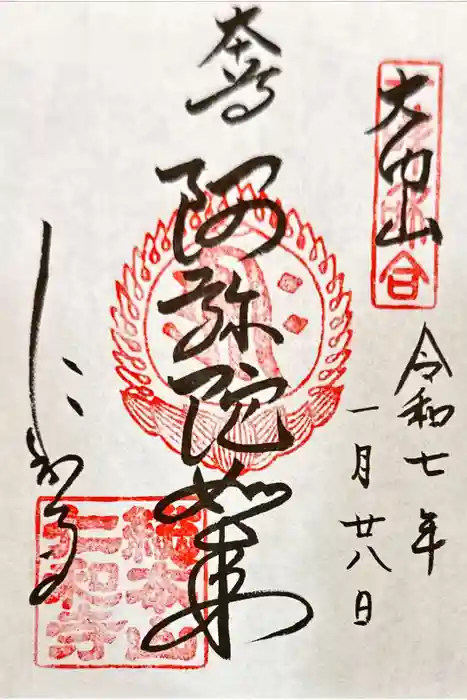 大内山
令和七年
一月廿八日
本尊
阿弥陀如来
仁和寺
総本山
仁和寺